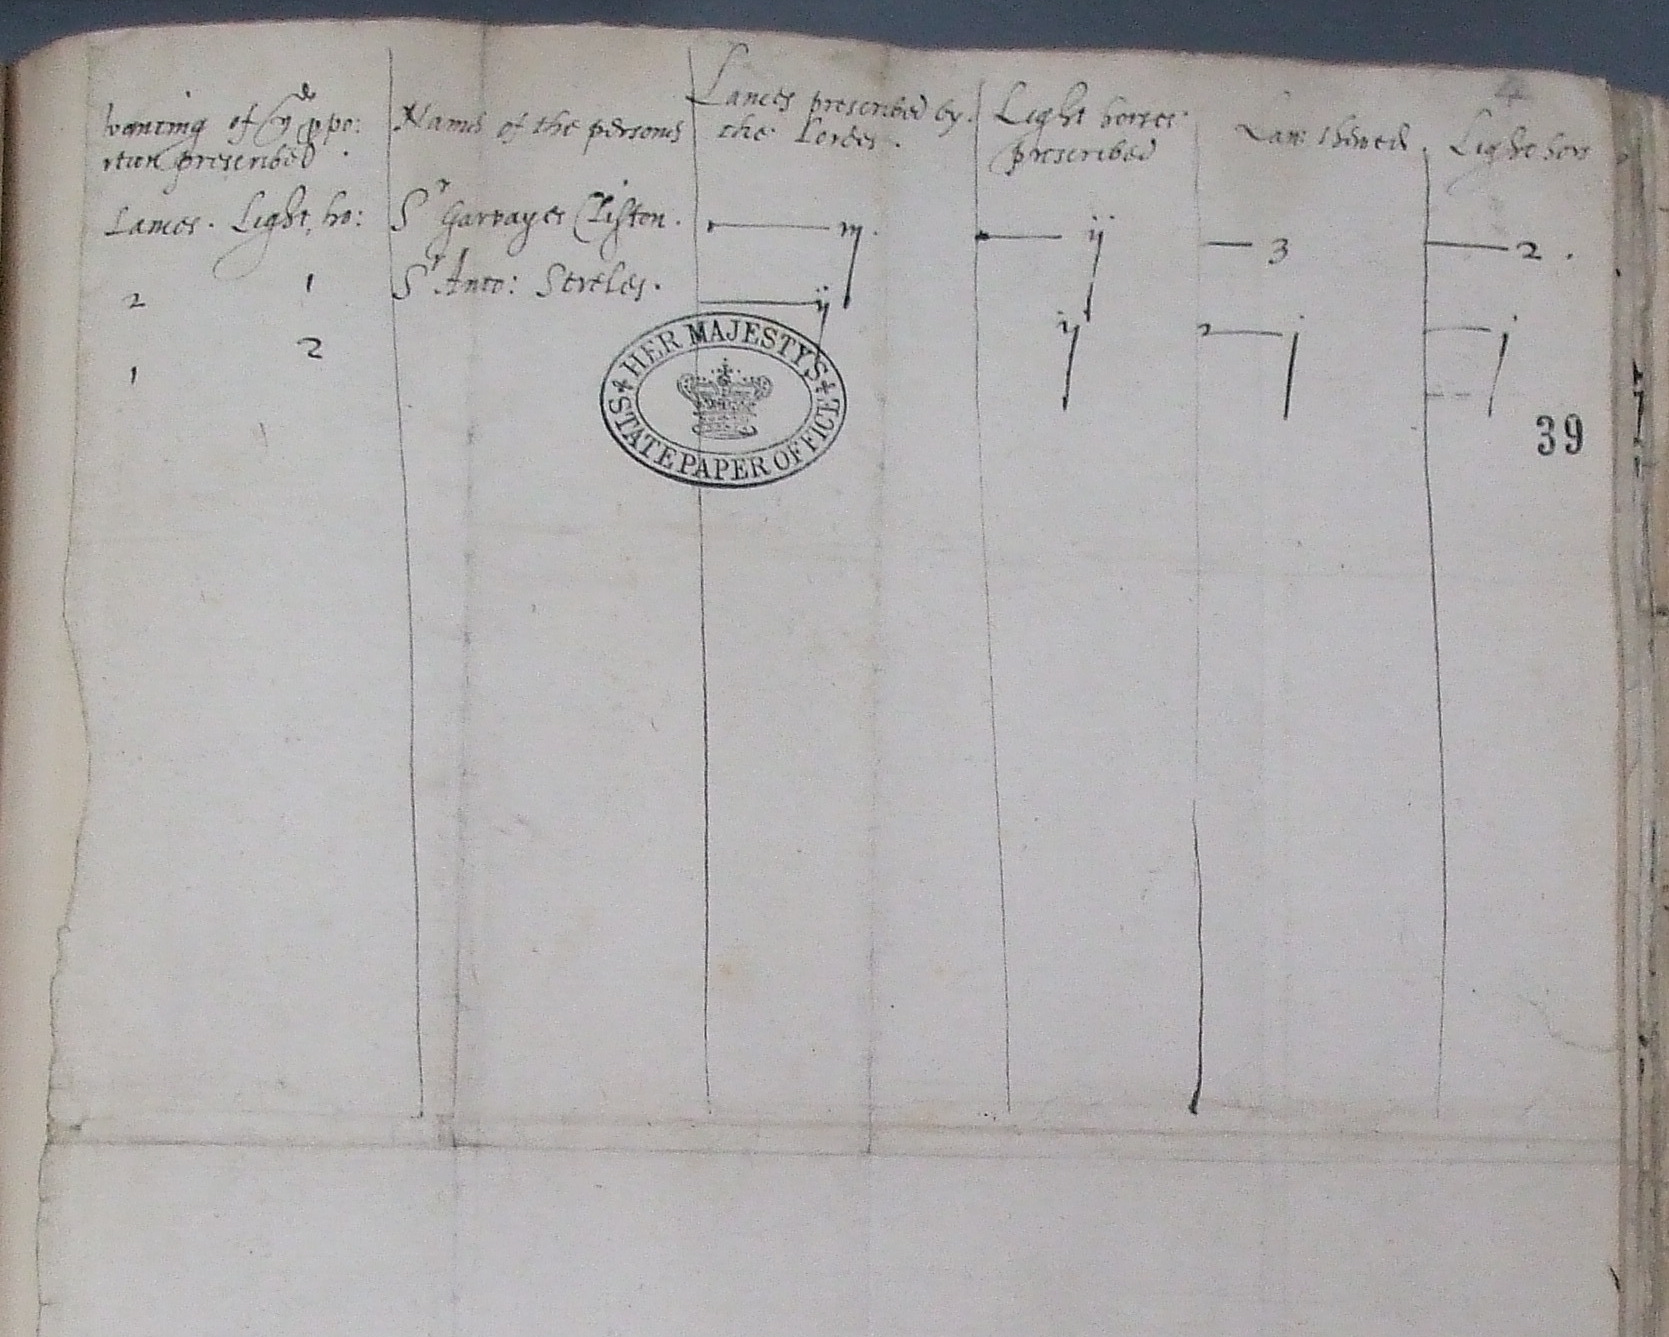 4
wanting of ye ppo: Names of the persons Lances prescribed by Light horses Lan: shewed. Light hors
rtion prescribed. the Lordes. prescribed
Lances. Light ho: Sr Garvayes Clifton. iij. ij 3 2.
2 1 Sr Anto: Streley. ij ij j j
1 2
HER MAJESTY'S
STATE PAPER OFFICE
39